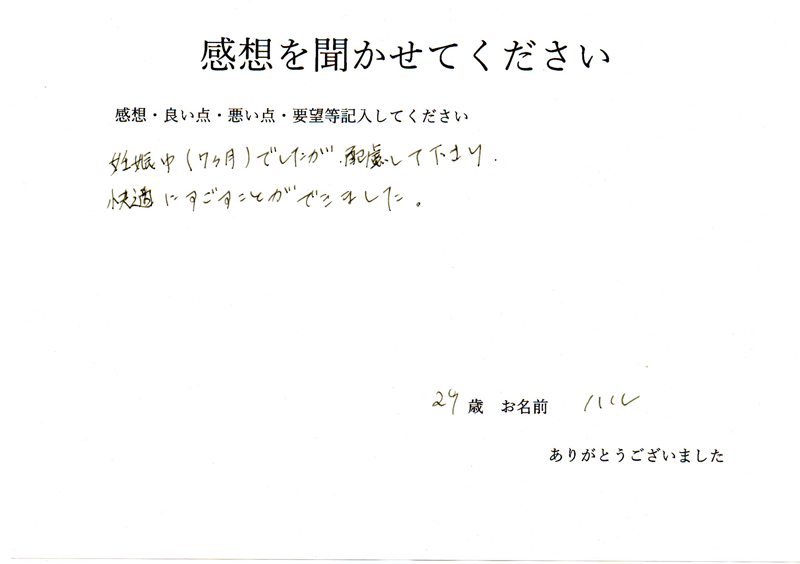 感想を聞かせてください
感想・良い点・悪い点・要望等記入してください
妊娠中(7ヶ月)でしたが、配慮して下さり、
快適にすごすことができました。
29歳 お名前 ハル
ありがとうございました